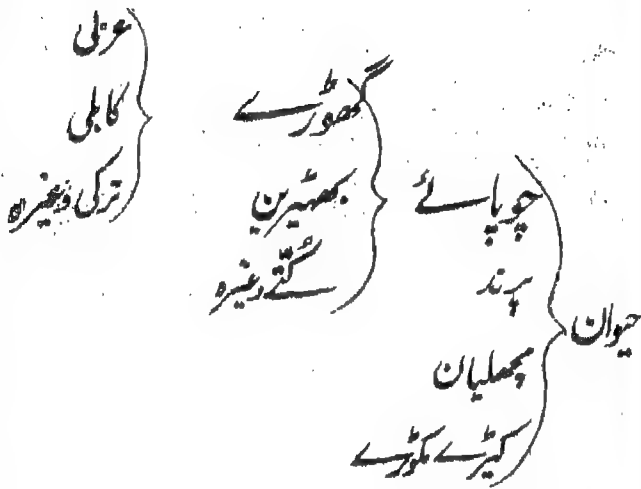 حیوان
چوپائے
پرند
مچھلیان
کیڑے مکوڑے
گھوڑے
بھیڑین
کُتّے وغیرہ
عربی
کابلی
ترکی وغیرہ